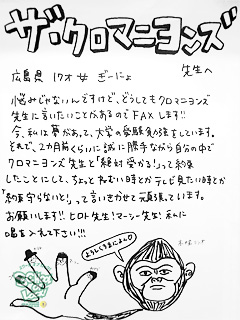 ザ・クロマニヨンズ
広島県 17才 女 ぎーにょ 先生へ
悩みじゃないんですけど、どうしてもクロマニヨンズ
先生に言いたいことがあるのでFAXします!!
今、私は夢があって、大学の受験勉強をしています。
それで、2ヵ月前くらいに誠に勝手ながら自分の中で
クロマニヨンズ先生と「絶対受かる!」って約束
したことにして、ちょっとねむい時とかテレビ見たい時とか
「約束守らないと!」って言いきかせて頑張っています。
お願いします!! ヒロト先生!マーシー先生!私に
喝を入れて下さい!!!